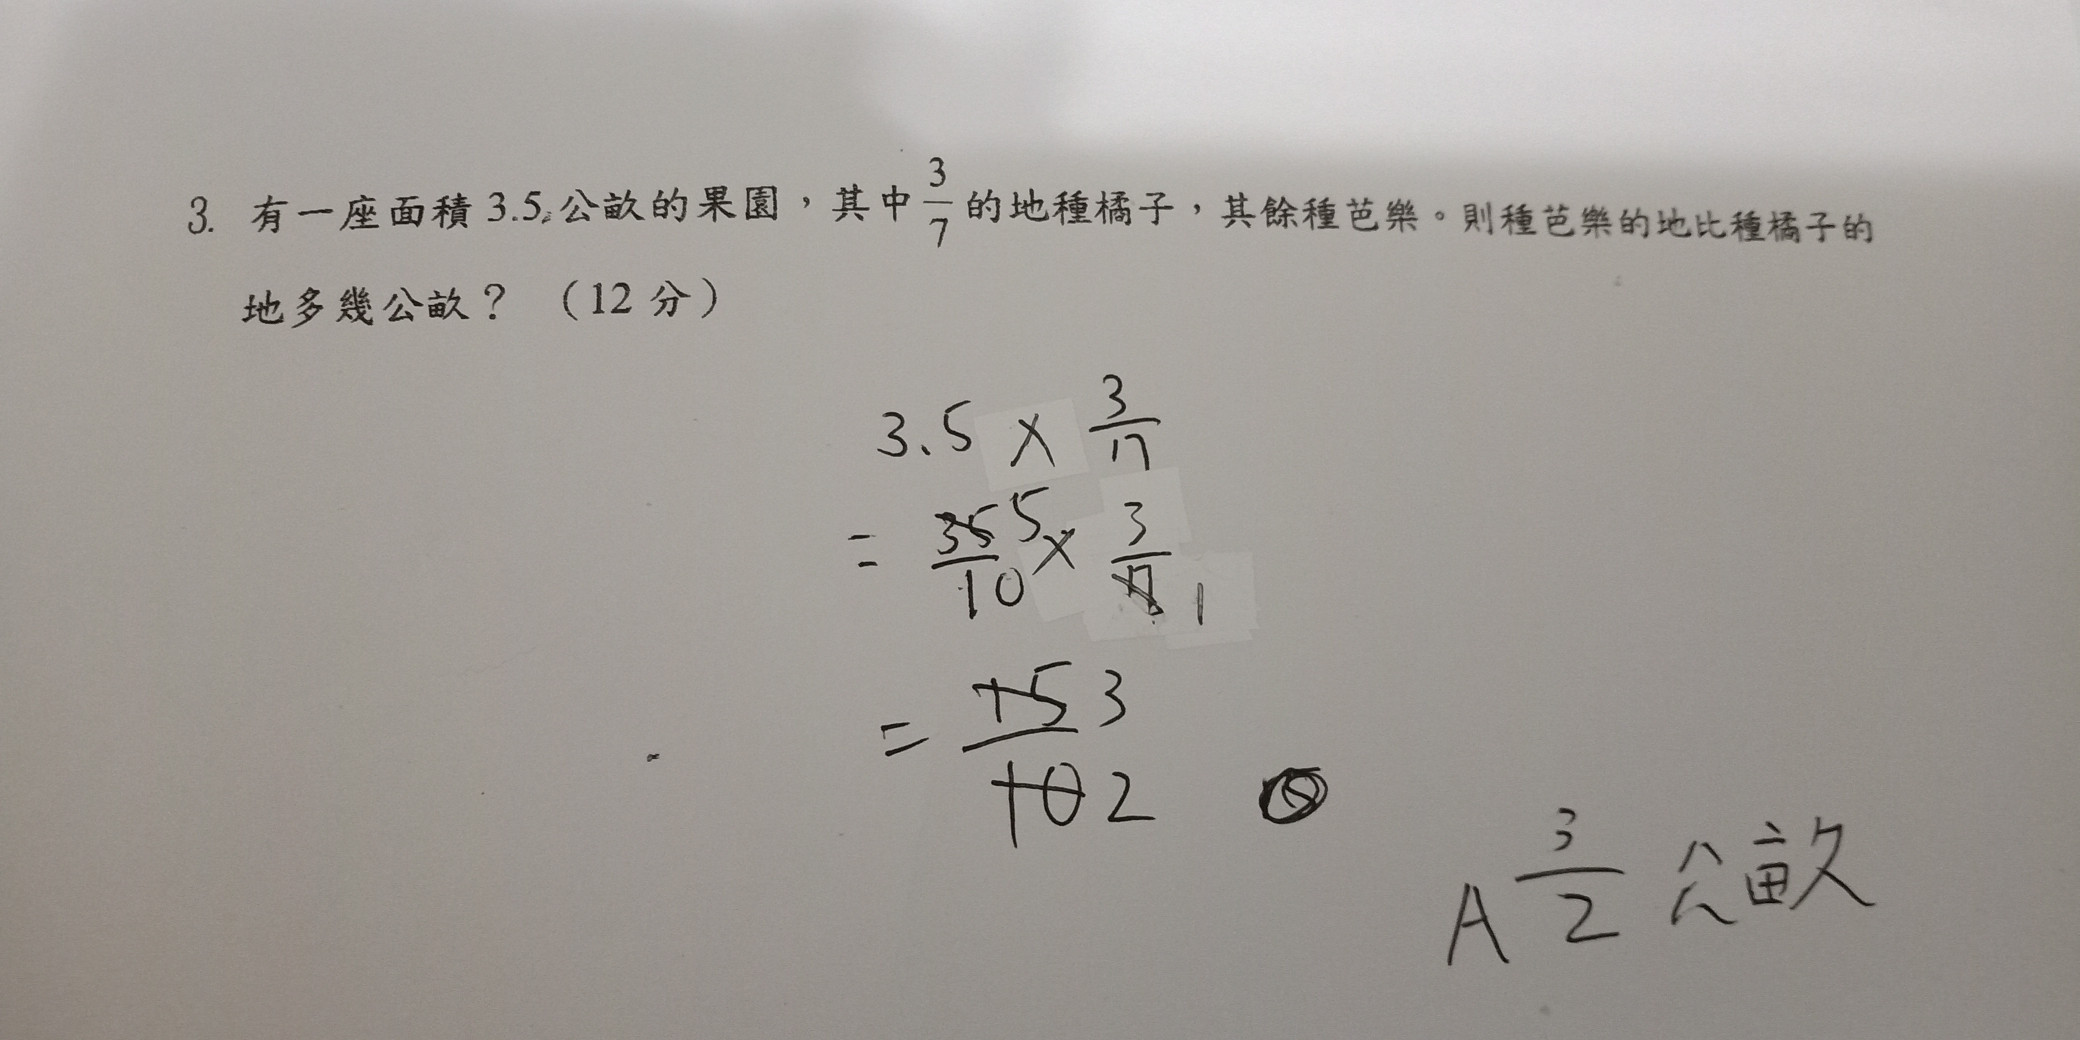 3. 有一座面積 3.5 公畝的果園，其中 3/7 的地種橘子，其餘種芭樂。則種芭樂的地比種橘子的
地多幾公畝？ （12 分）
3.5 × 3/7
= 35 5/10 × 3/7 1
= 15 3/10 2
A 3/2 公畝